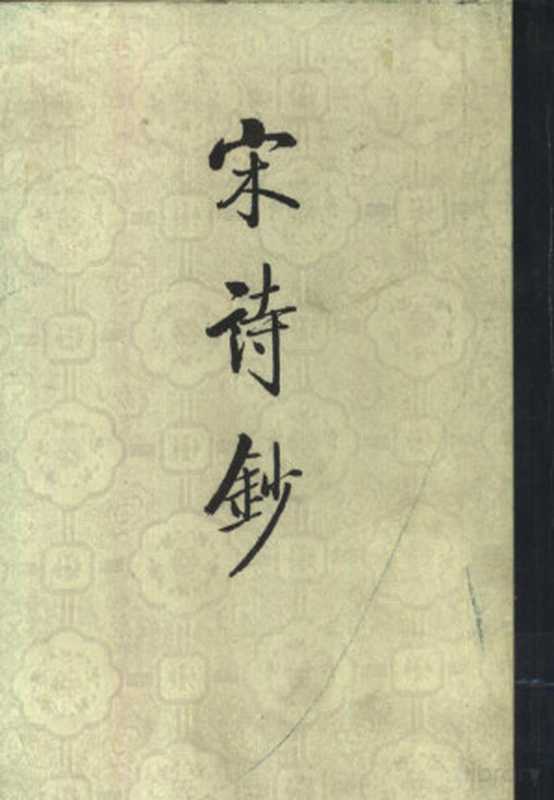 宋詩鈔